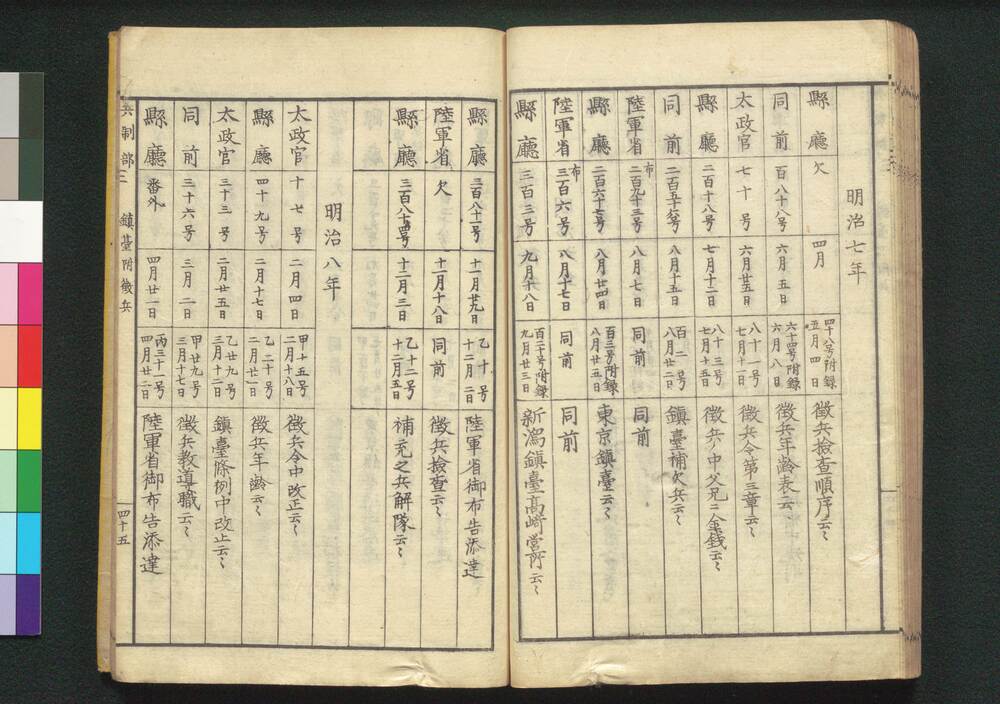 明治七年
縣廳 欠 四月 四十八号附録 五月四日 徴兵撿査順序云々
同前 百八十八号 六月五日 六十四号附録 六月八日 徴兵年齢表云々
太政官 七十号 六月廿五日 八十一号 七月十一日 徴兵令第三章云々
縣廳 二百十八号 七月十二日 八十三号 七月十五日 徴兵ノ中父兄ニ金錢云々
同前 二百五十六号 八月十五日 百二号 八月廿二日 鎮臺補欠兵云々
陸軍省 布 二百九十三号 八月七日 同前 同前
縣廳 二百六十七号 八月廿四日 百三号附録 八月廿五日 東京鎮臺云々
陸軍省 布 三百六号 八月十七日 同前 同前
縣廳 三百三号 九月十八日 百二十号附録 九月廿三日 新潟鎮臺高崎營所云々
縣廳 三百八十一号 十一月廿九日 乙十号 十二月二日 陸軍省御布告添達
陸軍省 欠 十一月十八日 同前 徴兵撿査云々
縣廳 三百八十四号 十二月三日 乙十二号 十二月五日 補充之兵解隊云々
明治八年
太政官 十七号 二月四日 甲十五号 二月十八日 徴兵令中改正云々
縣廳 四十九号 二月十七日 乙二十号 二月廿一日 徴兵年齢云々
太政官 三十三号 二月廿五日 乙廿九号 三月十二日 鎮臺條例中改正云々
同前 三十六号 三月二日 甲廿九号 三月十七日 徴兵教導職云々
縣廳 番外 四月廿一日 丙三十一号 四月廿二日 陸軍省御布告添達
兵制部二 鎮臺附徴兵 四十五